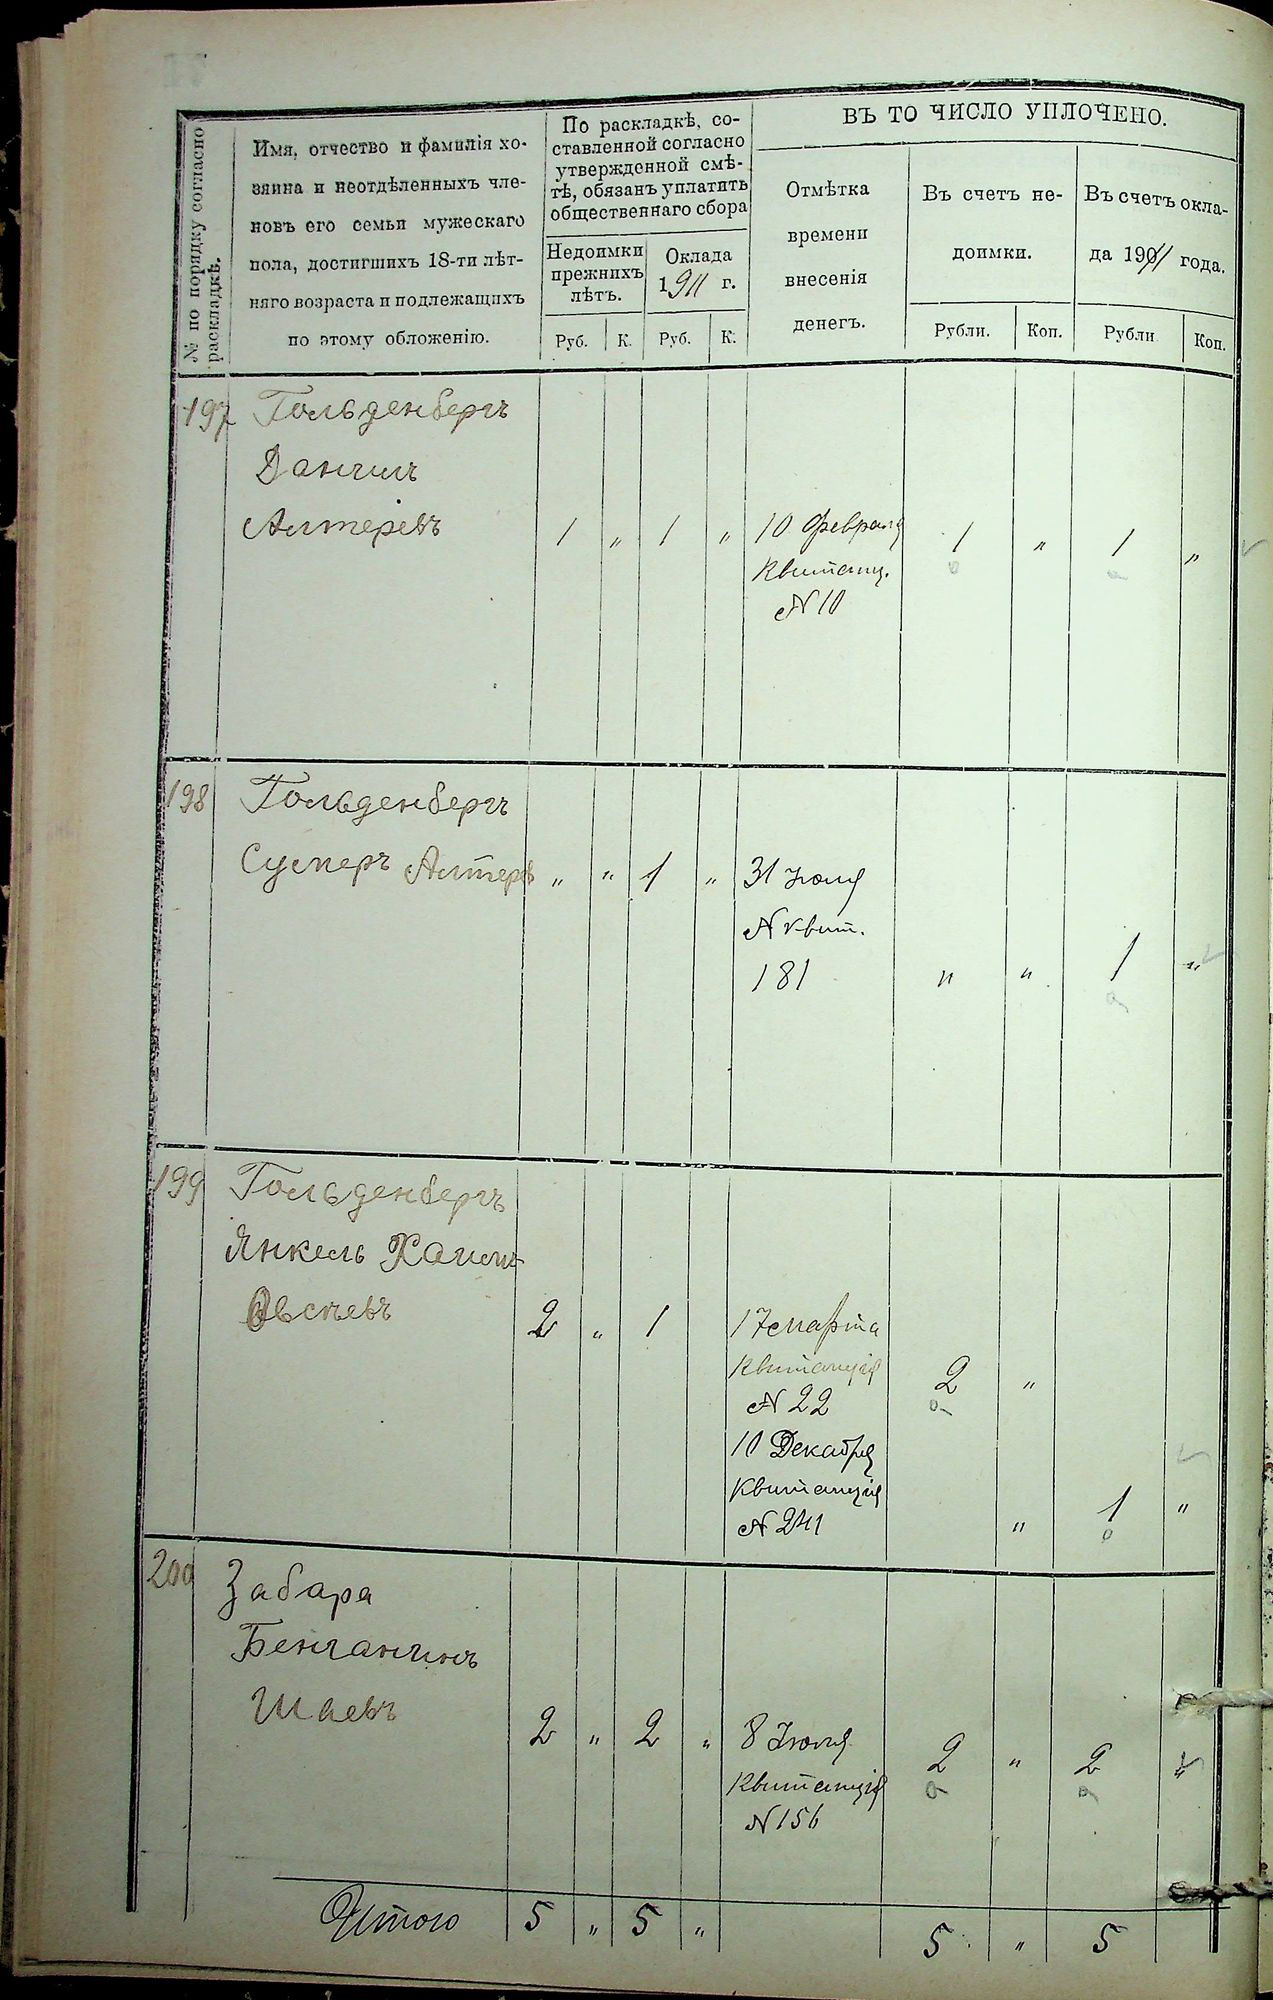 № по порядку согласно
раскладкѣ.
Имя, отчество и фамилія хо-
зяина и неотдѣленныхъ чле-
новъ его семьи мужескаго
пола, достигшихъ 18-ти лѣт-
няго возраста и подлежащихъ
по этому обложенію.
По раскладкѣ, со-
ставленной согласно
утвержденной смѣ-
тѣ, обязанъ уплатить
общественнаго сбора
Недоимки
прежнихъ
лѣтъ.
Оклада
1911 г.
Руб. К. Руб. К.
ВЪ ТО ЧИСЛО УПЛОЧЕНО.
Отмѣтка
времени
внесенія
денегъ.
Въ счетъ не-
доимки.
Въ счетъ окла-
да 1911 года.
Рубли. Коп. Рубли Коп.
197 Гольденбергъ
Данилъ
Алтеревъ 1 " 1 " 10 Февраля 1 " 1 "
Квитанц.
№ 10
198 Гольденбергъ
Сумеръ Алтеровъ " " 1 " 31 Июля
№ квит.
181 " " 1 "
199 Гольденбергъ
Янкель Хаим-
Овсѣевъ 2 " 1 17 марта
Квитанція 2 "
№ 22
10 Декабря
Квитанція
№ 241 " 1 "
200 Забара
Бенчанинъ
Шаевъ 2 " 2 " 8 Июля 2 " 2 "
Квитанція
№ 156
Итого 5 " 5 " 5 " 5